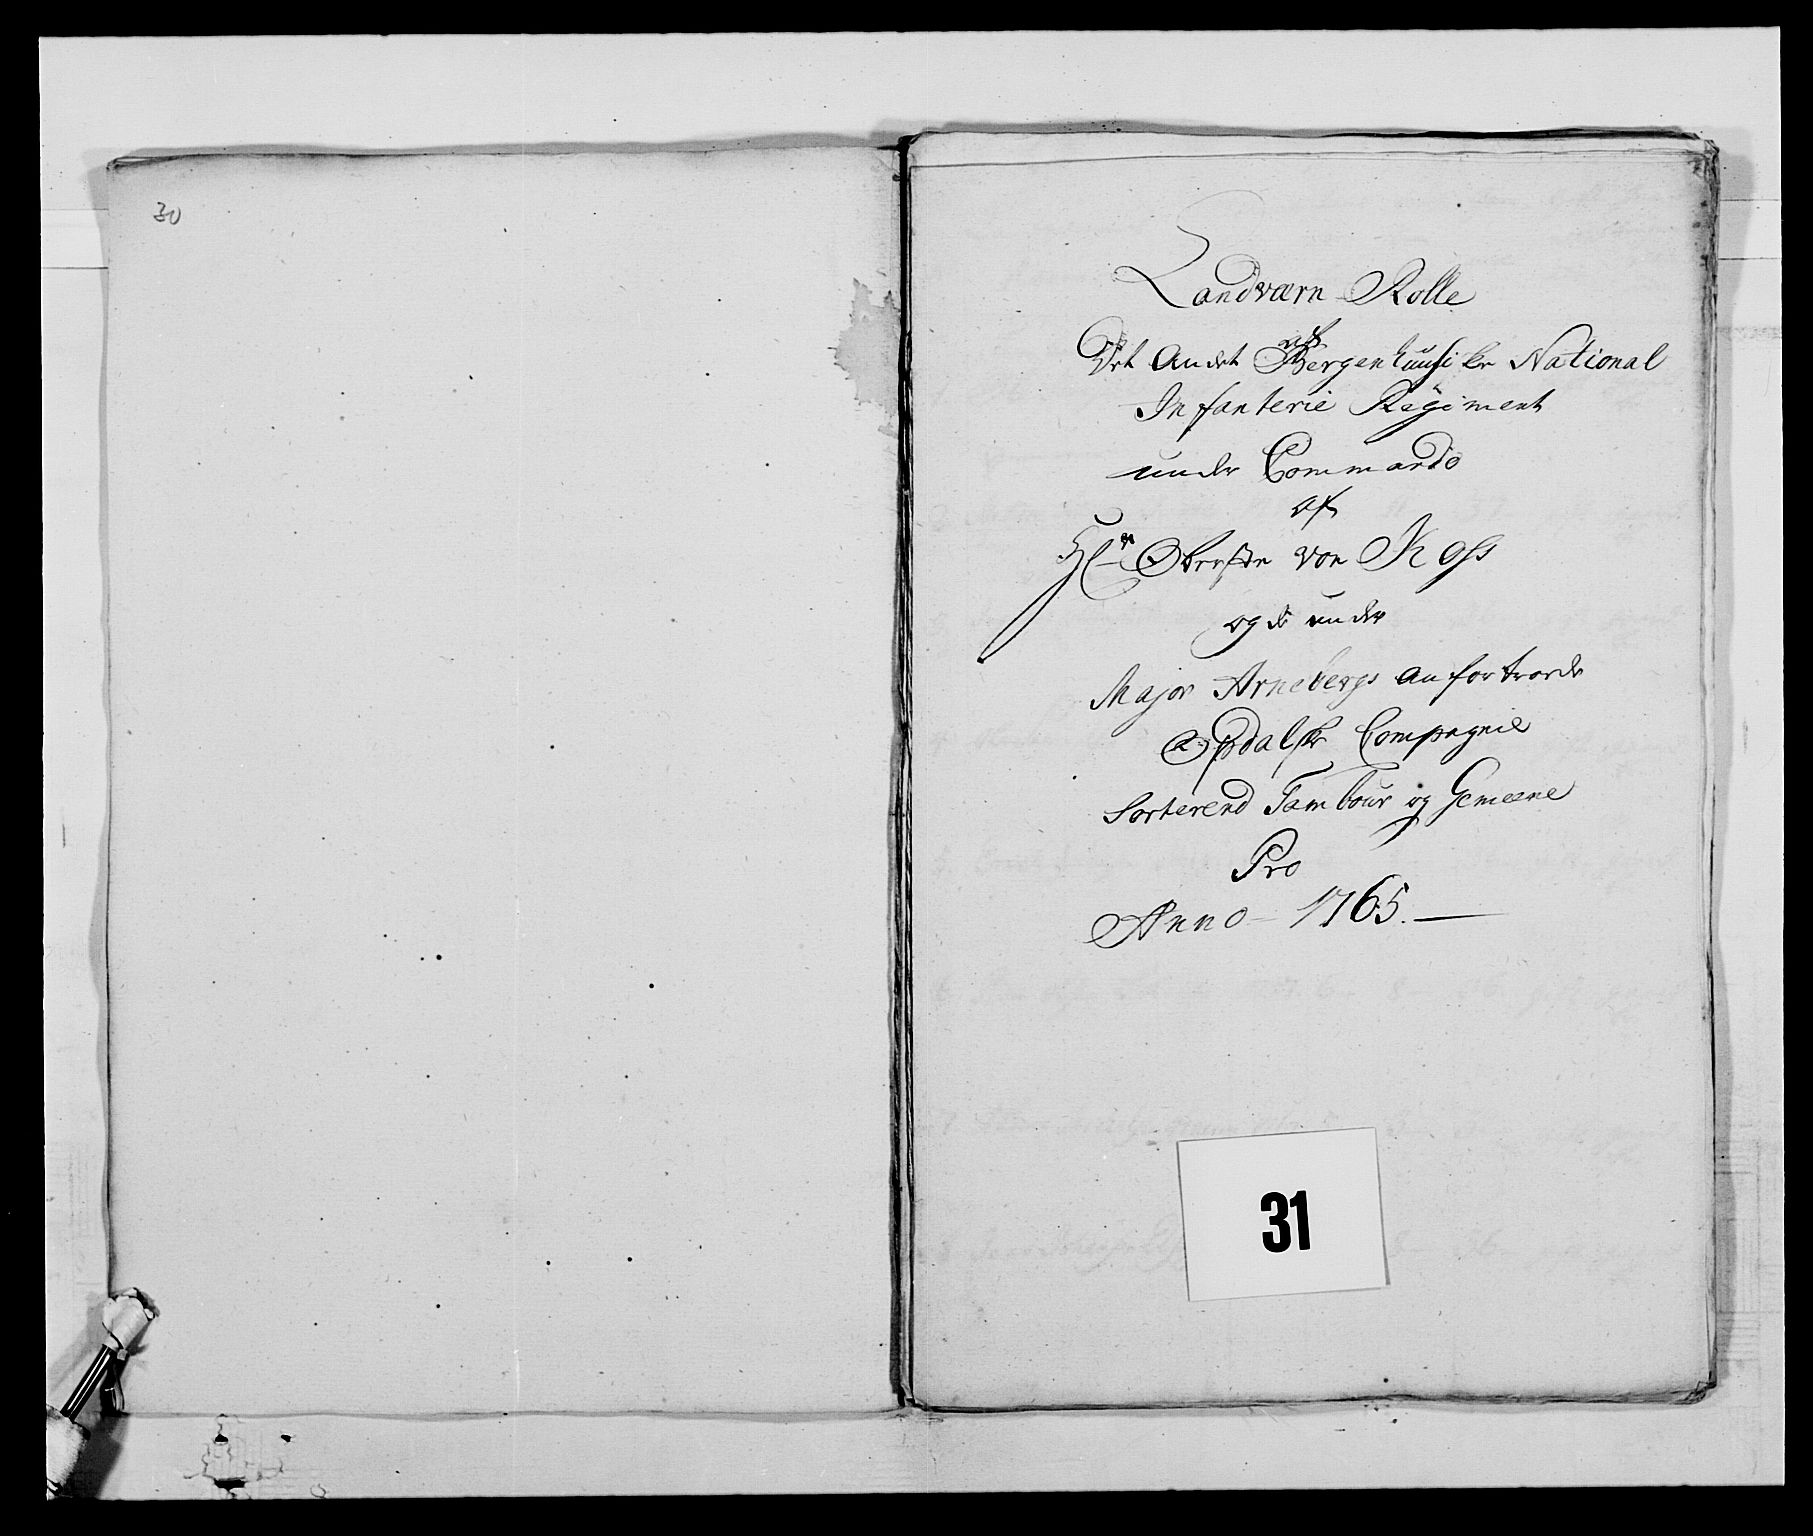 30
Landværn Rolle
af
Det Andet Bergenhuusiske National
Infanterie Regiment
under Commando
af
Hr Obersten von Koss
og de under
Major Arnebergs anfortroede
Opdalske Compagnie
Sorterend Tambour og Gemeene
Pro
Anno 1765.
31